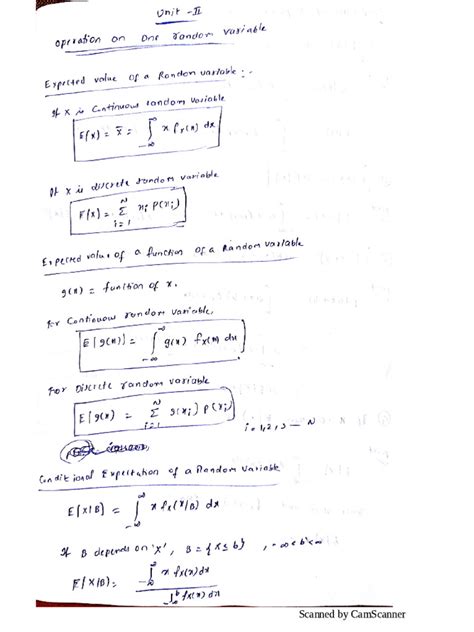 Unit - II
Operation on One random variable
Expected value of a Random variable :-
If X is Continuous random variable
E[X] = X̄ = ∫_{-∞}^{∞} x fx(x) dx
If X is discrete random variable
E[X] = Σ_{i=1}^{N} xi P(xi)
Expected value of a function of a Random variable
g(x) = function of x.
for Continuous random variable,
E[g(x)] = ∫_{-∞}^{∞} g(x) fx(x) dx
For Discrete random variable
E[g(x)] = Σ_{i=1}^{N} g(xi) P(xi)
i = 1, 2, 3 — N
Conditional Expectation of a Random variable
E[X|B] = ∫_{-∞}^{∞} x fx(x/B) dx
If B depends on 'X', B = {X ≤ b}, -∞ < b < ∞
E[X|B] = ∫ x fx(x) dx / ∫_{-∞}^{b} fx(x) dx
Scanned by CamScanner